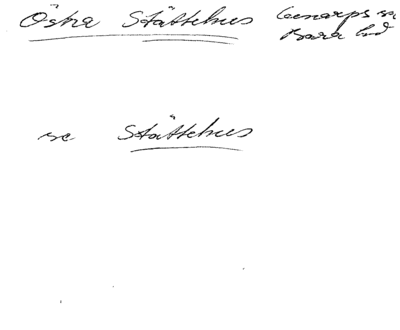 Östra Stättehus Genarps sn
Bara hd
se Stättehus